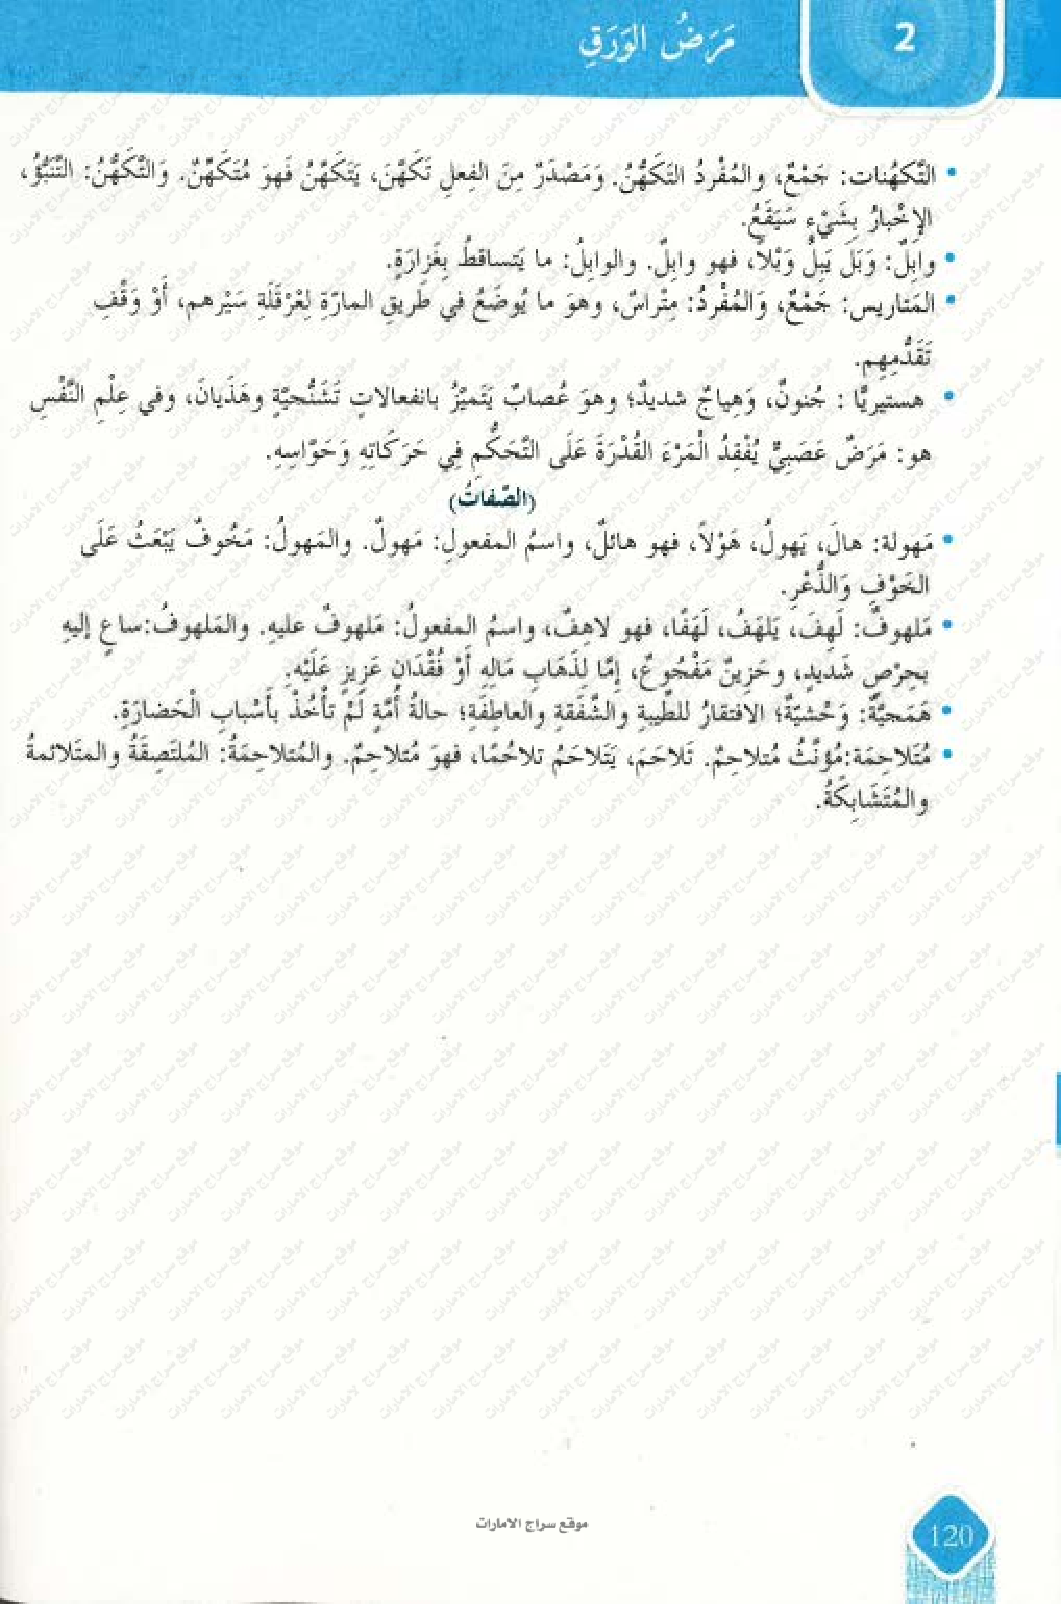 2
مَرَضُ الوَرَقِ
• التَّكهُنات: جَمْعٌ، والمُفْردُ التَكَهُّنُ. وَمَصْدَرٌ مِنَ الفِعلِ تَكَهَّنَ، يَتَكَهَّنُ فَهوَ مُتَكَهِّنٌ. وَالتَّكَهُّنُ: التَّنَبُّؤُ،
الإِخْبارُ بِشَيْءٍ سَيَقَعُ.
• وابِلٌ: وَبَلَ يَبِلُ وَبْلًا، فهو وابِلٌ. والوابِلُ: ما يَتساقطُ بِغَزارَةٍ.
• المَتاريس: جَمْعٌ، وَالمُفْردُ: مِتْراسٌ، وهوَ ما يُوضَعُ في طَريقِ المارّةِ لِعَرْقَلَةِ سَيْرهم، أَوْ وَقْفِ
تَقَدُّمِهِم.
• هستيريًّا : جُنونٌ، وَهِياجٌ شديدٌ؛ وهوَ عُصابٌ يَتَميّزُ بانفعالاتٍ تَشَنُّجيّةٍ وهَذَيانَ، وفي عِلْمِ النَّفْسِ
هو: مَرَضٌ عَصَبِيٌّ يُفْقِدُ الْمَرْءَ القُدْرَةَ عَلَى التَّحَكُّمِ فِي حَرَكَاتِهِ وَحَوَّاسِهِ.
(الصِّفاتُ)
• مَهولة: هالَ، يَهولُ، هَوْلًا، فهو هائلٌ، واسمُ المفعولِ: مَهولٌ. والمَهولُ: مَخُوفٌ يَبْعَثُ عَلَى
الخَوْفِ وَالذُّعْرِ.
• مَلهوفٌ: لَهِفَ، يَلهَفُ، لَهَفًا، فهو لاهِفٌ، واسمُ المفعولُ: مَلهوفٌ عليهِ. والمَلهوفُ:ساعٍ إليهِ
بحِرْصٍ شَديدٍ، وحَزِينٌ مَفْجُوعٌ، إمَّا لِذَهَابِ مَالِهِ أَوْ فُقْدَانِ عَزِيزٍ عَلَيْهِ.
• هَمَجيَّةٌ: وَحْشيّةٌ؛ الافتقارُ للطِّيبةِ والشَّفَقةِ والعاطِفَةِ؛ حالةُ أُمَّةٍ لَمْ تأْخُذْ بأَسْبابِ الْحَضارَةِ.
• مُتَلاحِمَة:مُؤنَّثُ مُتلاحِمٌ. تَلاحَمَ، يَتَلاحَمُ تلاحُمًا، فهوَ مُتلاحِمٌ. والمُتلاحِمَةُ: المُلتَصِقَةُ والمتَلائمةُ
والمُتَشَابِكَةُ.
موقع سراج الامارات
120